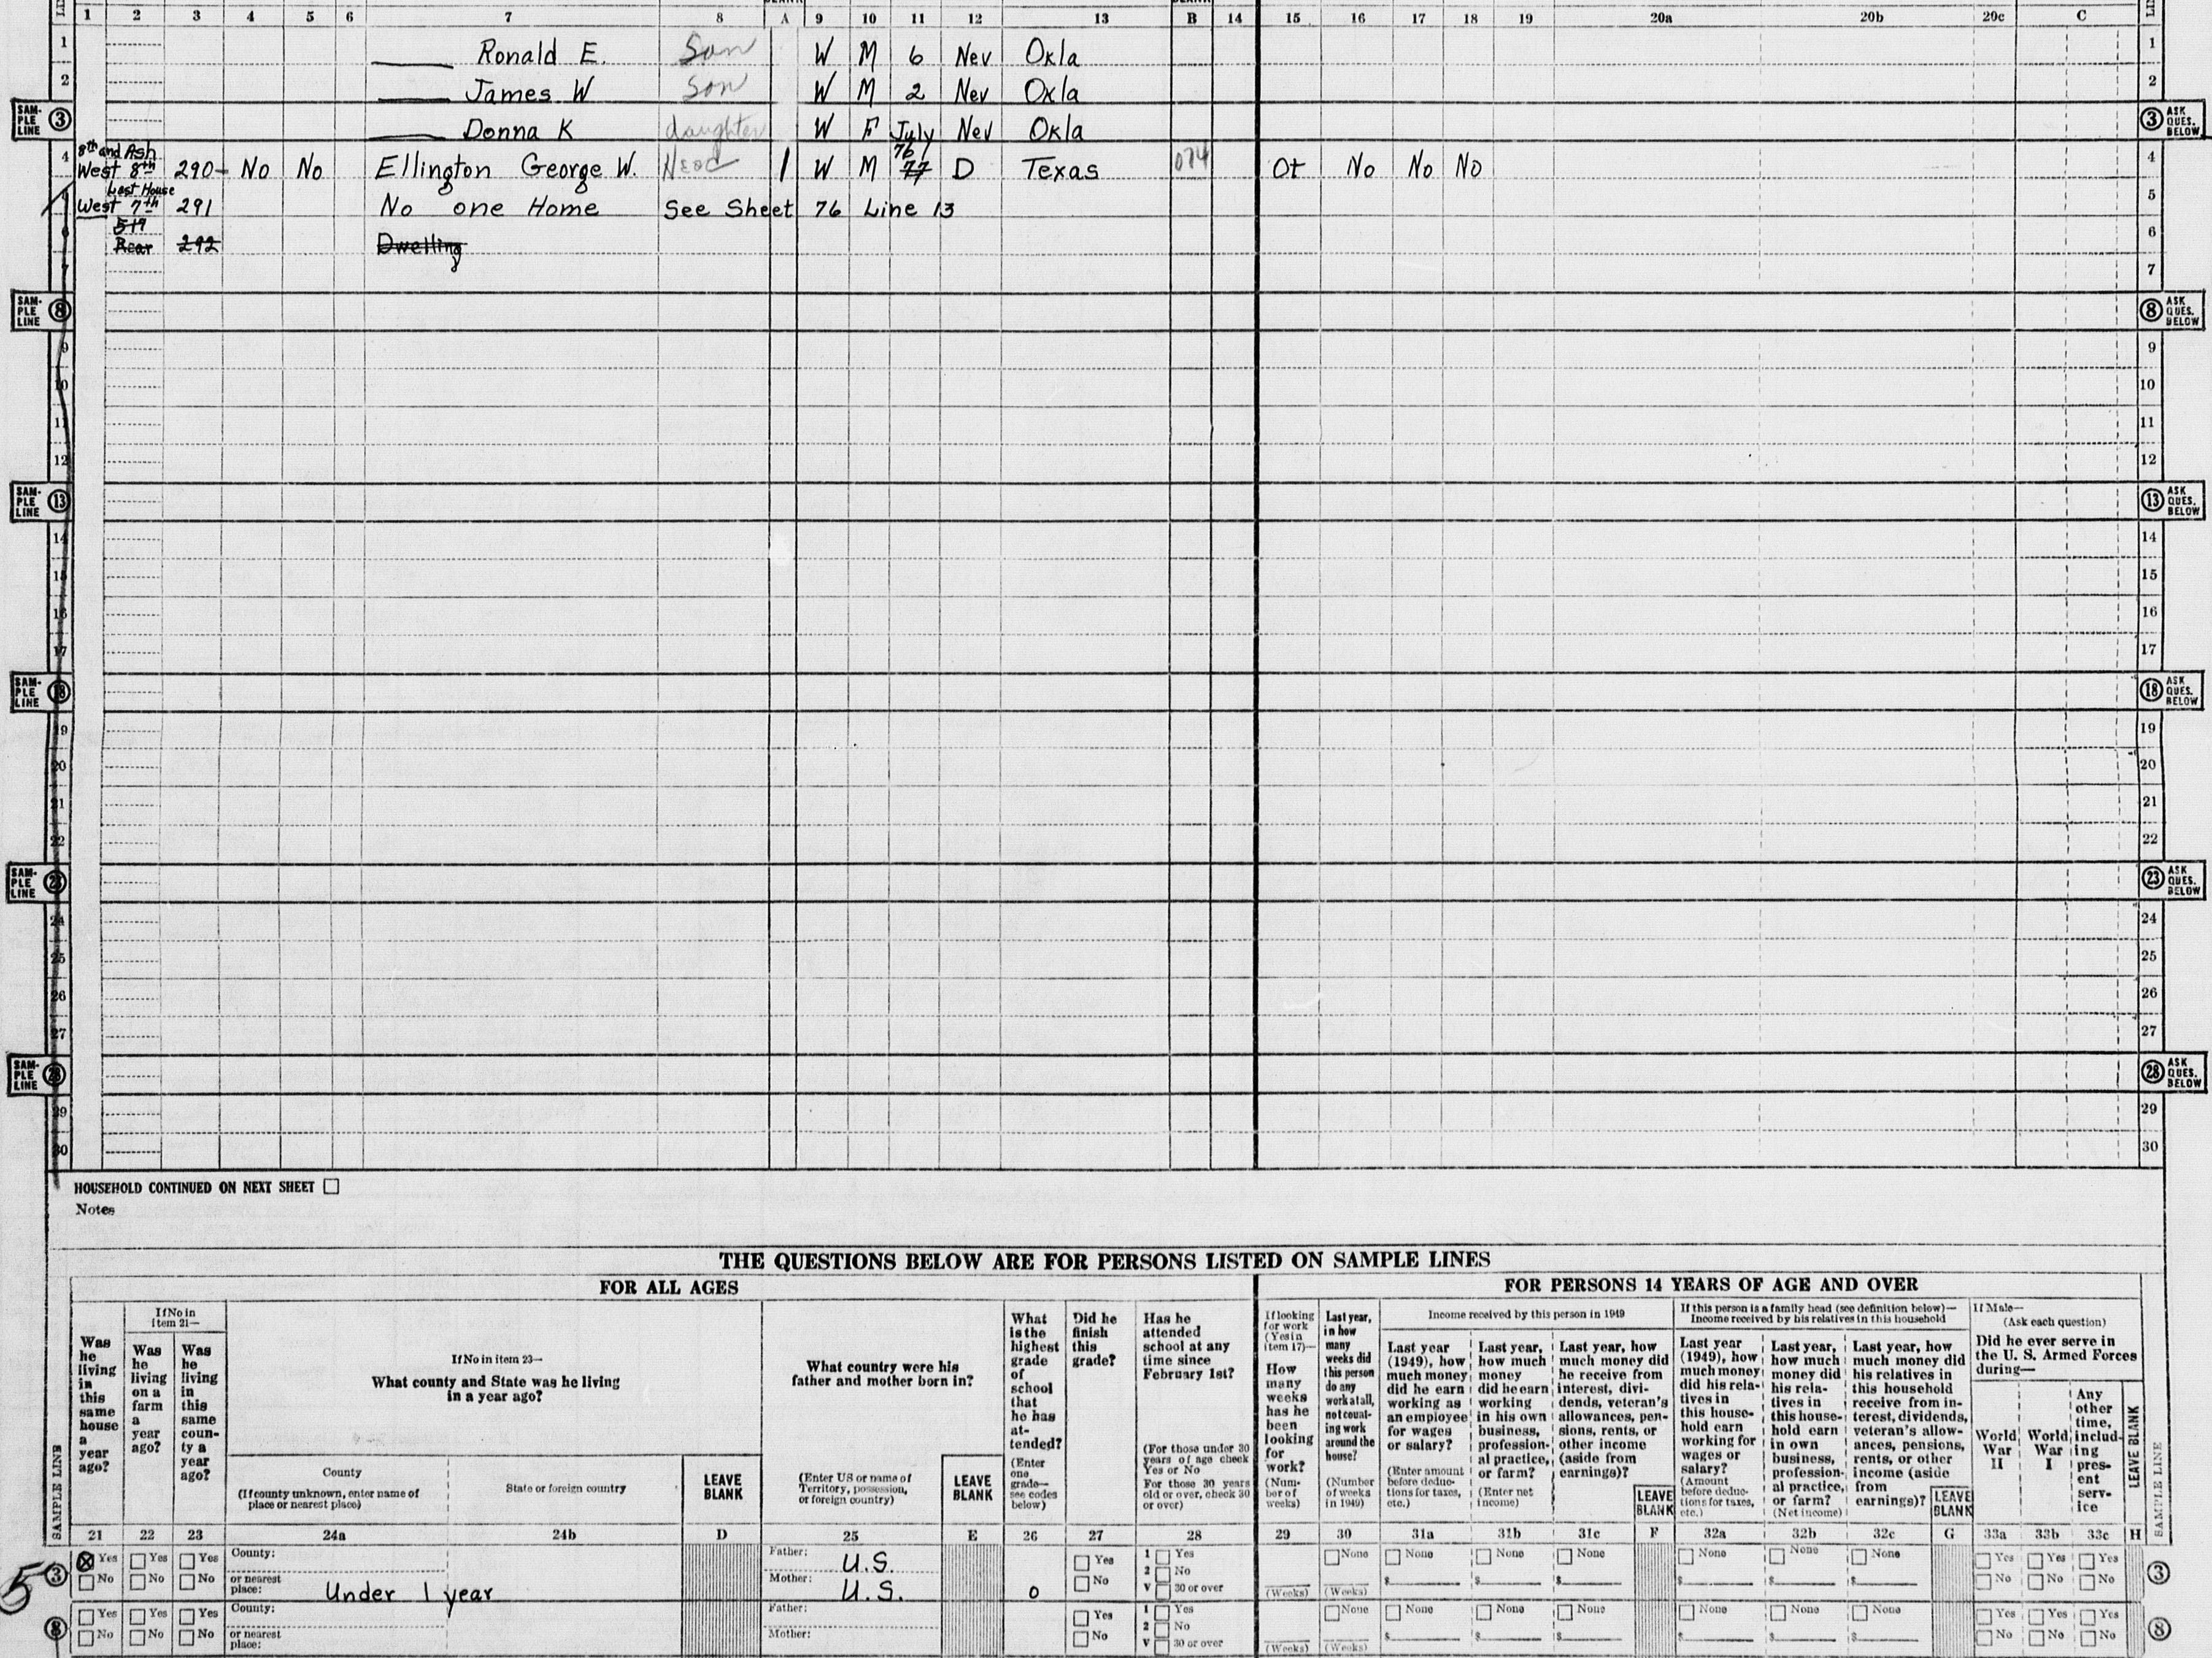 1 2 3 4 5 6 7 8 A 9 10 11 12 13 B 14 15 16 17 18 19 20a 20b 20c C
1 Ronald E. Son W M 6 Nev Okla 1
2 James W Son W M 2 Nev Okla 2
SAMPLE LINE 3 Donna K daughter W F July Nev Okla 3 ASK QUES. BELOW
8th and Ash
4 West 8th 290 No No Ellington George W. Head 1 W M 76 77 D Texas 074 Ot No No No 4
Last House
West 7th 291 No one Home See Sheet 76 Line 13 5
519
6 Rear 292 Dwelling 6
7 7
SAMPLE LINE 8 8 ASK QUES. BELOW
9 9
10 10
11 11
12 12
SAMPLE LINE 13 13 ASK QUES. BELOW
14 14
15 15
16 16
17 17
SAMPLE LINE 18 18 ASK QUES. BELOW
19 19
20 20
21 21
22 22
SAMPLE LINE 23 23 ASK QUES. BELOW
24 24
25 25
26 26
27 27
SAMPLE LINE 28 28 ASK QUES. BELOW
29 29
30 30
HOUSEHOLD CONTINUED ON NEXT SHEET
Notes
THE QUESTIONS BELOW ARE FOR PERSONS LISTED ON SAMPLE LINES
FOR ALL AGES
FOR PERSONS 14 YEARS OF AGE AND OVER
SAMPLE LINE
Was he living in this same house a year ago?
If No in item 21—
Was he living on a farm a year ago?
Was he living in this same county a year ago?
If No in item 23—
What county and State was he living in a year ago?
County
(If county unknown, enter name of place or nearest place)
State or foreign country
LEAVE BLANK
What country were his father and mother born in?
(Enter US or name of Territory, possession, or foreign country)
LEAVE BLANK
What is the highest grade of school that he has attended?
(Enter one grade—see codes below)
Did he finish this grade?
Has he attended school at any time since February 1st?
(For those under 30 years of age check Yes or No
For those 30 years old or over, check 30 or over)
If looking for work (Yes in item 17)—
How many weeks has he been looking for work?
(Number of weeks)
Last year, in how many weeks did this person do any work at all, not counting work around the house?
(Number of weeks in 1949)
Income received by this person in 1949
Last year (1949), how much money did he earn working as an employee for wages or salary?
(Enter amount before deductions for taxes, etc.)
Last year, how much money did he earn working in his own business, professional practice, or farm?
(Enter net income)
Last year, how much money did he receive from interest, dividends, veteran's allowances, pensions, rents, or other income (aside from earnings)?
LEAVE BLANK
If this person is a family head (see definition below)—
Income received by his relatives in this household
Last year (1949), how much money did his relatives in this household earn working for wages or salary?
(Amount before deductions for taxes, etc.)
Last year, how much money did his relatives in this household earn in own business, professional practice, or farm?
(Net income)
Last year, how much money did his relatives in this household receive from interest, dividends, veteran's allowances, pensions, rents, or other income (aside from earnings)?
LEAVE BLANK
If Male—
(Ask each question)
Did he ever serve in the U. S. Armed Forces during—
World War II
World War I
Any other time, including present service
LEAVE BLANK
SAMPLE LINE
21 22 23 24a 24b D 25 E 26 27 28 29 30 31a 31b 31c F 32a 32b 32c G 33a 33b 33c H
5
3 Yes Yes Yes County: Father: U.S. Yes 1 Yes None None None None None None None Yes Yes Yes 3
No No No or nearest place: Under 1 year Mother: U.S. 0 No 2 No V 30 or over (Weeks) (Weeks) $ $ $ $ $ $ No No No
8 Yes Yes Yes County: Father: Yes 1 Yes None None None None None None None Yes Yes Yes 8
No No No or nearest place: Mother: No 2 No V 30 or over (Weeks) (Weeks) $ $ $ $ $ $ No No No